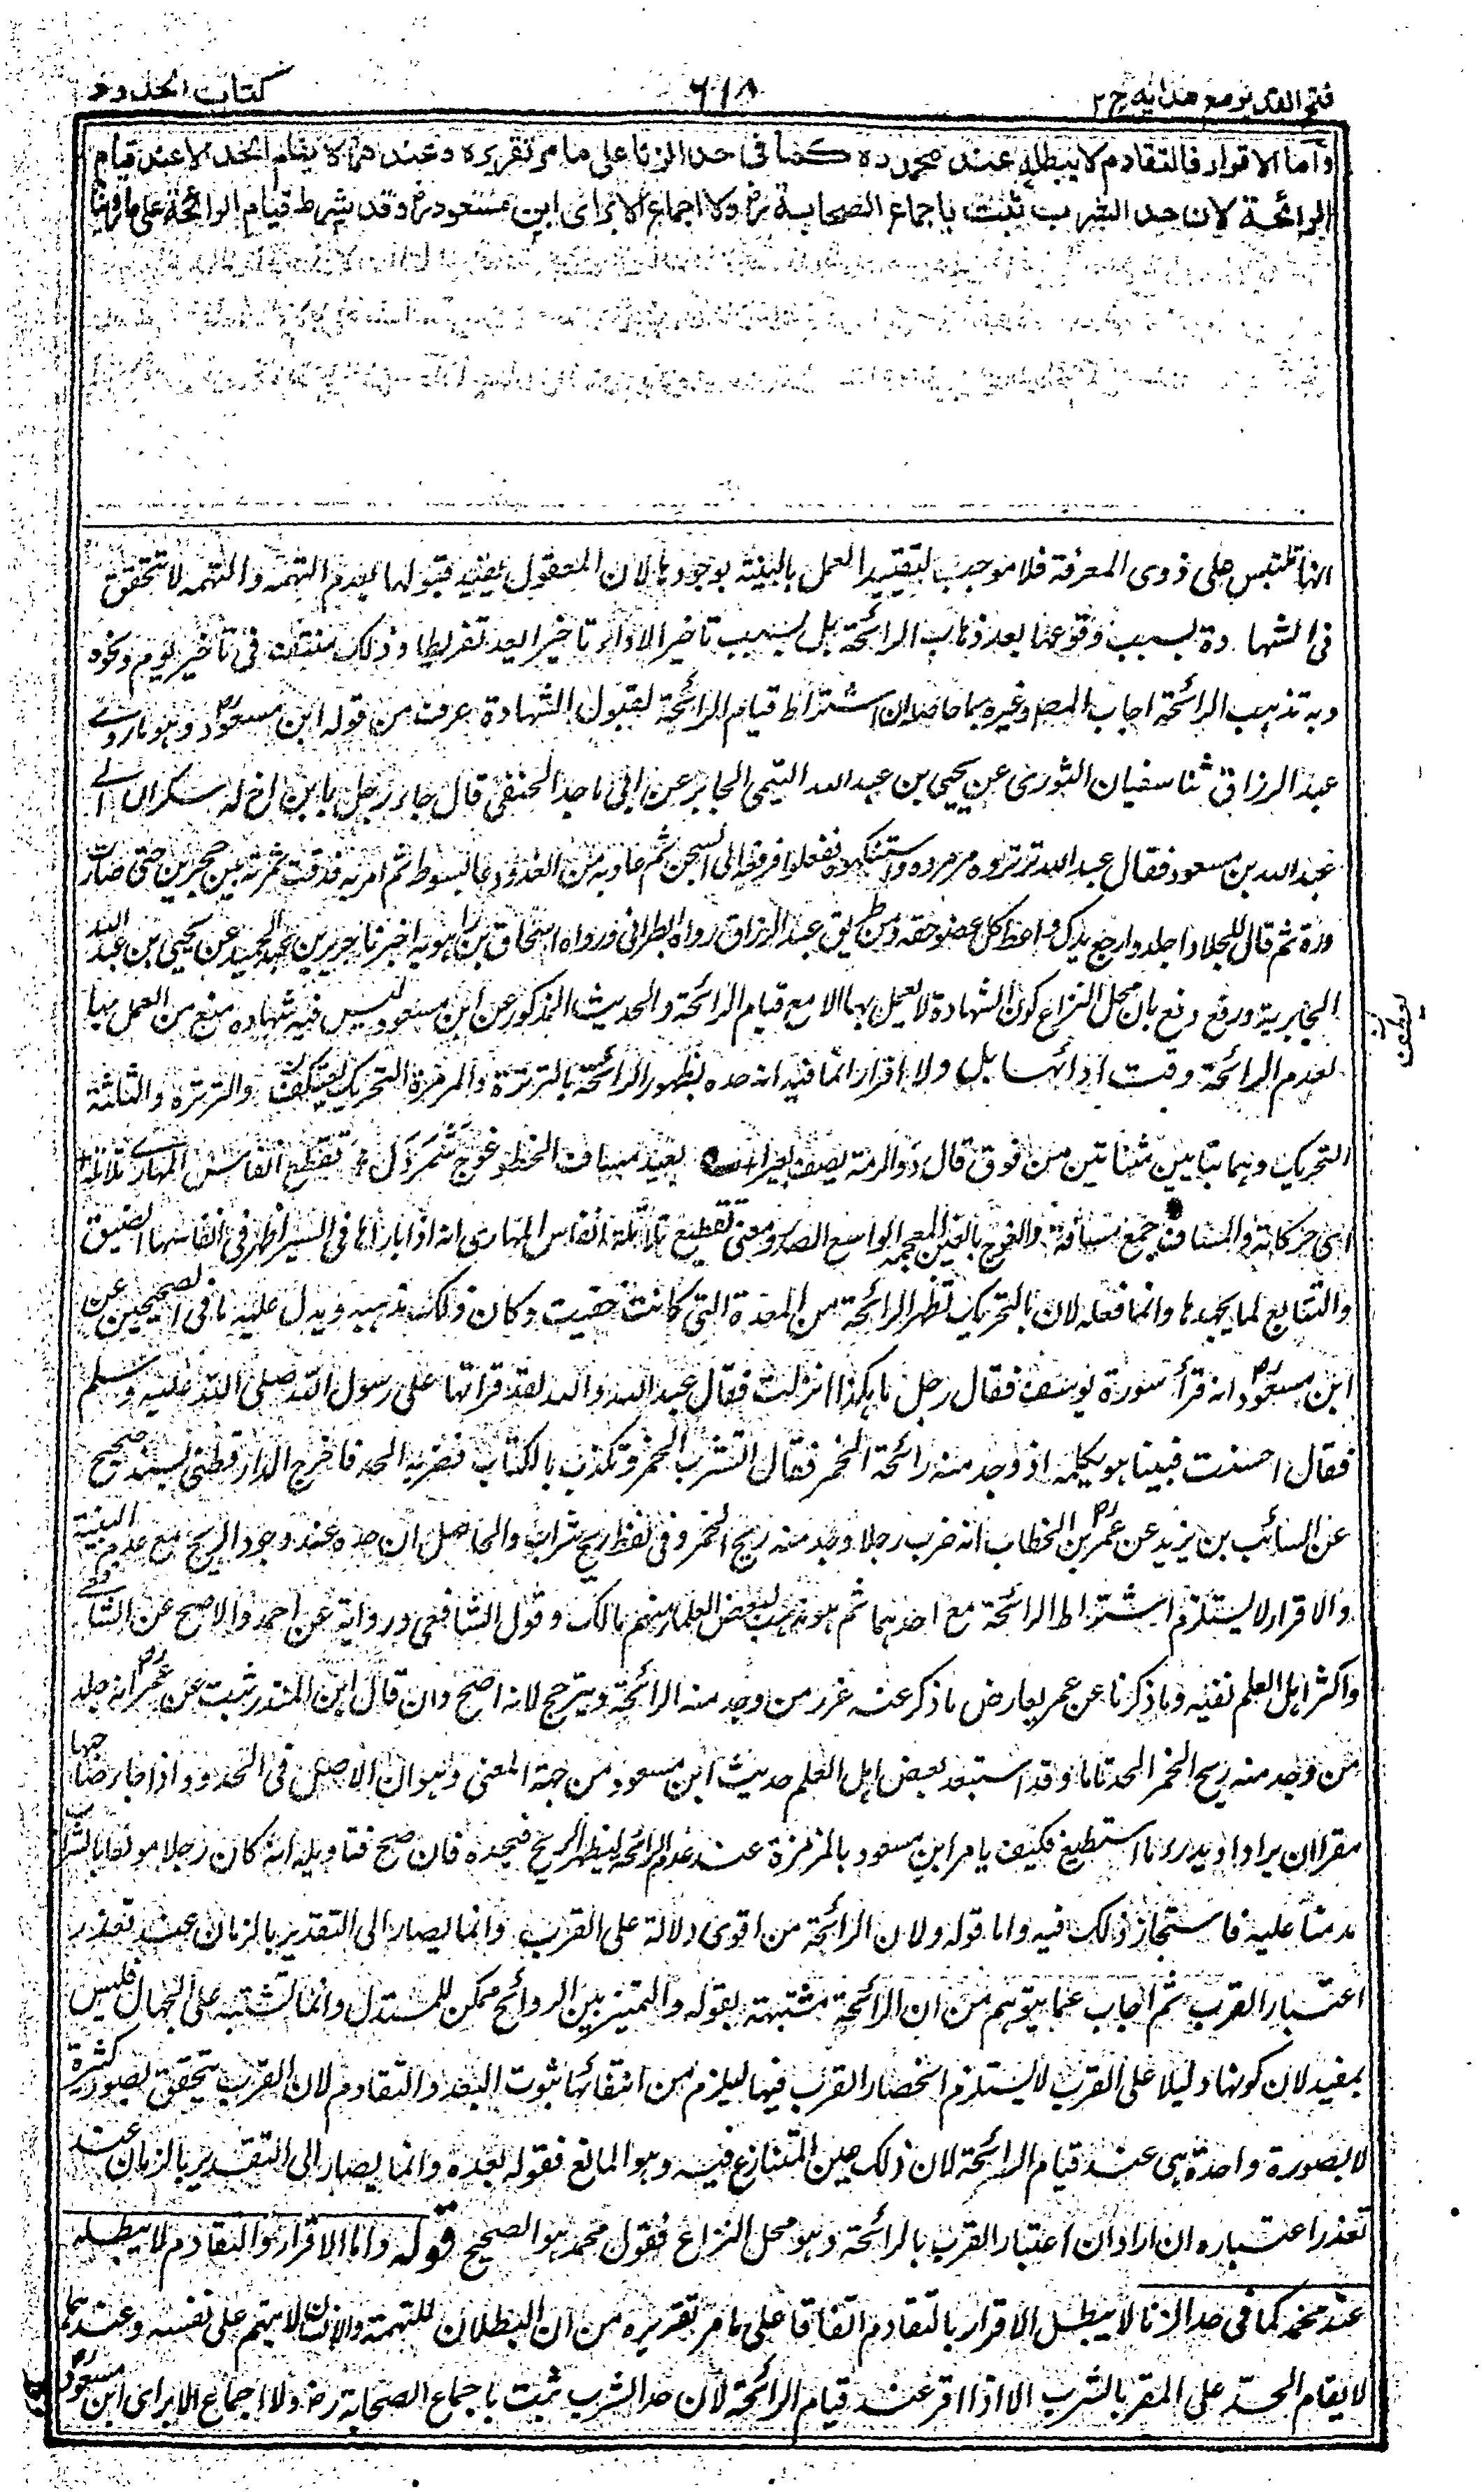 فتح القدير مع هدايه ج ٢
٦١٨
كتاب الحدود
وأما الاقرار فالتقادم لا يبطله عند محمد ره كما في حد الزنا على ما مر تقريره وعندهما لا يقام الحد الا عند قيام
الرائحة لان حد الشرب ثبت باجماع الصحابة رض ولا اجماع الا براى ابن مسعود رض وقد شرط قيام الرائحة على ما روينا
انها تلتبس على ذوى المعرفة فلا موجب لتقييد العمل بالبينة بوجودها لان المعقول يفيد قبولها لعدم التهمة والتهمة لا تتحقق
فى الشهادة بسبب وقوعها بعد ذهاب الرائحة بل بسبب تاخير الاداء تاخيرا يعد تفريطا وذلك منتف فى تأخير يوم ونحوه
وبه تذهب الرائحة اجاب المص وغيره بما حاصله ان اشتراط قيام الرائحة لقبول الشهادة عرفت من قول ابن مسعود رض وهو ما روى
عبد الرزاق ثنا سفيان الثورى عن يحيى بن عبد الله التيمى الجابر عن ابى ماجد الحنفى قال جاء رجل بابن اخ له سكران الى
عبد الله بن مسعود فقال عبد الله ترتروه ومزمزوه واستنكهوه ففعلوا فرفعه الى السجن ثم عاد به من الغد ودعا بسوط ثم امر به فدقت ثمرته بين حجرين حتى صارت
درة ثم قال للجلاد اجلد وارجع يدك واعط كل عضو حقه ومن طريق عبد الرزاق رواه الطبرانى ورواه اسحاق بن راهويه اخبرنا جرير بن عبد الحميد عن يحيى بن عبد الله
الجابر به ورفع دفع بان محل النزاع كون الشهادة لا يعمل بها الا مع قيام الرائحة والحديث المذكور عن ابن مسعود ليس فيه شهادة منع من العمل بها
لعدم الرائحة وقت ادائها بل ولا اقرار انما فيه انه حده بظهور الرائحة بالترترة والمزمزة التحريك بعنف والترترة والتلتلة
التحريك وهما بتاءين مثناتين من فوق قال ذو الرمة يصف بعيرا بعيد مساف الخطو غوج شمردل تقطع انفاس المهارى تلاتله
اى حركاته والمساف جمع مسافة والغوج بالغين المعجمة الواسع الصدر ومعنى تقطيع تلاتله انفاس المهارى انه اذا باراها فى السير اظهر فى انفاسها الضيق
والتتابع لما يجهدها وانما فعله لان بالتحريك تظهر الرائحة من المعدة التى كانت خفيت وكان ذلك مذهبه ويدل عليه ما فى الصحيحين عن
ابن مسعود رض انه قرأ سورة يوسف فقال رجل ما هكذا انزلت فقال عبد الله والله لقد قرأتها على رسول الله صلى الله عليه وسلم
فقال احسنت فبينا هو يكلمه اذ وجد منه رائحة الخمر فقال اتشرب الخمر وتكذب بالكتاب فضربه الحد فاخرج الدارقطنى بسند صحيح
عن السائب بن يزيد عن عمر رض بن الخطاب انه ضرب رجلا وجد منه ريح الخمر وفى لفظ ريح شراب والحاصل ان حده عند وجود الريح مع عدم البينة
والاقرار لا يستلزم اشتراط الرائحة مع احدهما ثم هو مذهب لبعض العلماء منهم مالك وقول الشافعى ورواية عن احمد والاصح عن الشافعى
واكثر اهل العلم نفيه وما ذكرنا عن عمر يعارض ما ذكر عنه عزر من وجد منه الرائحة ويترجح لانه اصح وان قال ابن المنذر ثبت عن عمر رض انه جلد
من وجد منه ريح الخمر الحد تاما وقد استبعد بعض اهل العلم حديث ابن مسعود من جهة المعنى وهو ان الاصل فى الحدود اذا جاء صاحبها
مقرا ان يرد او يدرء ما استطيع فكيف يامر ابن مسعود بالمزمزة عند عدم الرائحة ليظهر الريح فيحده فان صح فتاويله انه كان رجلا مولعا بالشراب
مدمنا عليه فاستجاز ذلك فيه واما قوله ولان الرائحة من اقوى دلالة على القرب وانما يصار الى التقدير بالزمان عند تعذر
اعتبار القرب ثم اجاب عما يتوهم من ان الرائحة مشتبهة بقوله والتمييز بين الروائح ممكن للمستدل وانما تشتبه على الجهال فليس
بمفيد لان كونها دليلا على القرب لا يستلزم انحصار القرب فيها ليلزم من انتفائها ثبوت البعد والتقادم لان القرب يتحقق بصور كثيرة
لا بصورة واحدة هى عند قيام الرائحة لان ذلك عين المتنازع فيه وهو المانع فقوله بعده وانما يصار الى التقدير بالزمان عند
تعذر اعتباره ان اراد ان اعتبار القرب بالرائحة وهو محل النزاع فقول محمد هو الصحيح قوله واما الاقرار فالتقادم لا يبطله
عند محمد كما فى حد الزنا لا يبطل الاقرار بالتقادم اتفاقا على ما مر تقريره من ان البطلان للتهمة والانسان لا يتهم على نفسه وعندهما
لا يقام الحد على المقر بالشرب الا اذا اقر عند قيام الرائحة لان حد الشرب ثبت باجماع الصحابة رض ولا اجماع الا براى ابن مسعود رض